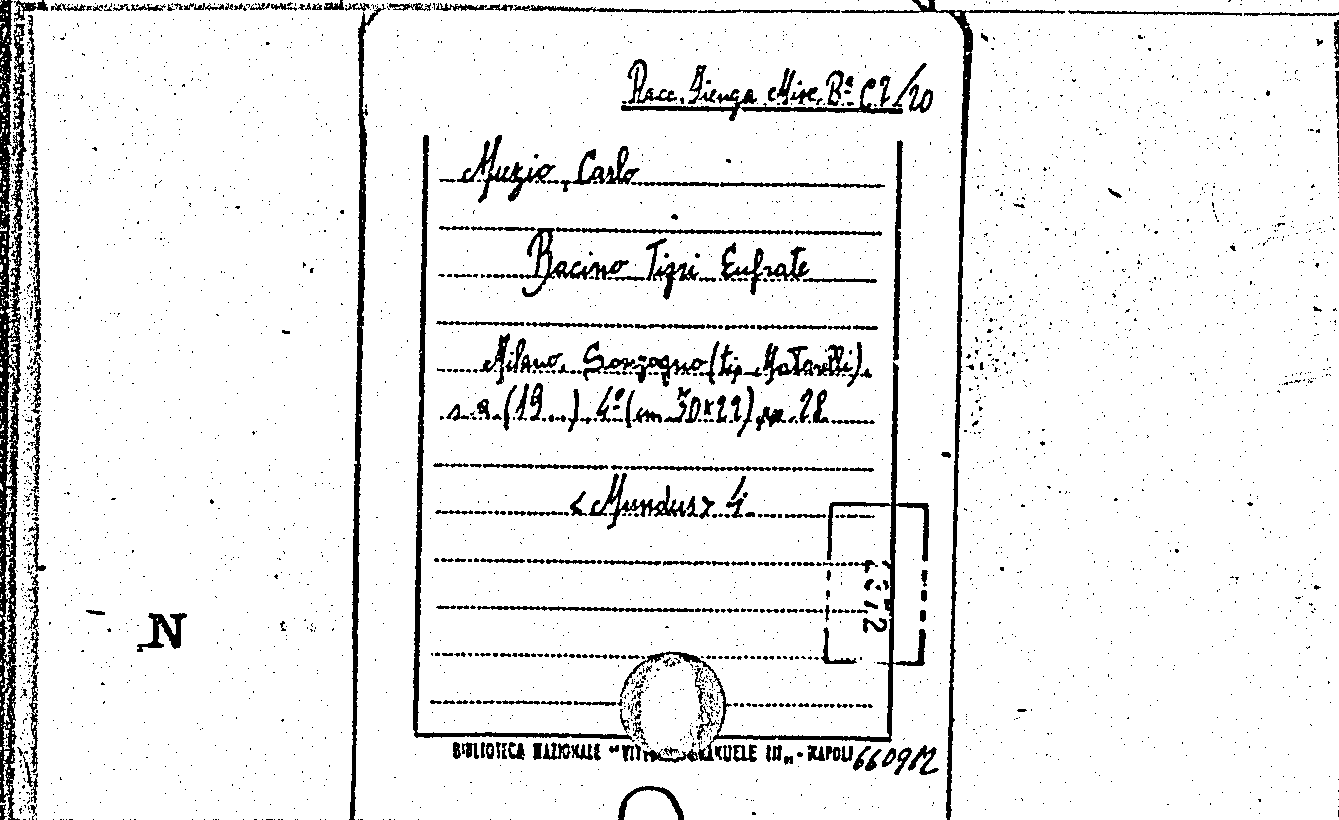 Racc. Sienga Misc. Bª C7/20
Muzio, Carlo
Bacino Tigri Eufrate
Milano, Sonzogno (tip. Matarelli),
s. a. (19...), 4º (cm 30x22), pp. 28
<Mundus> 4.
N
BIBLIOTECA NAZIONALE "VITT EMANUELE III" - NAPOLI 660912